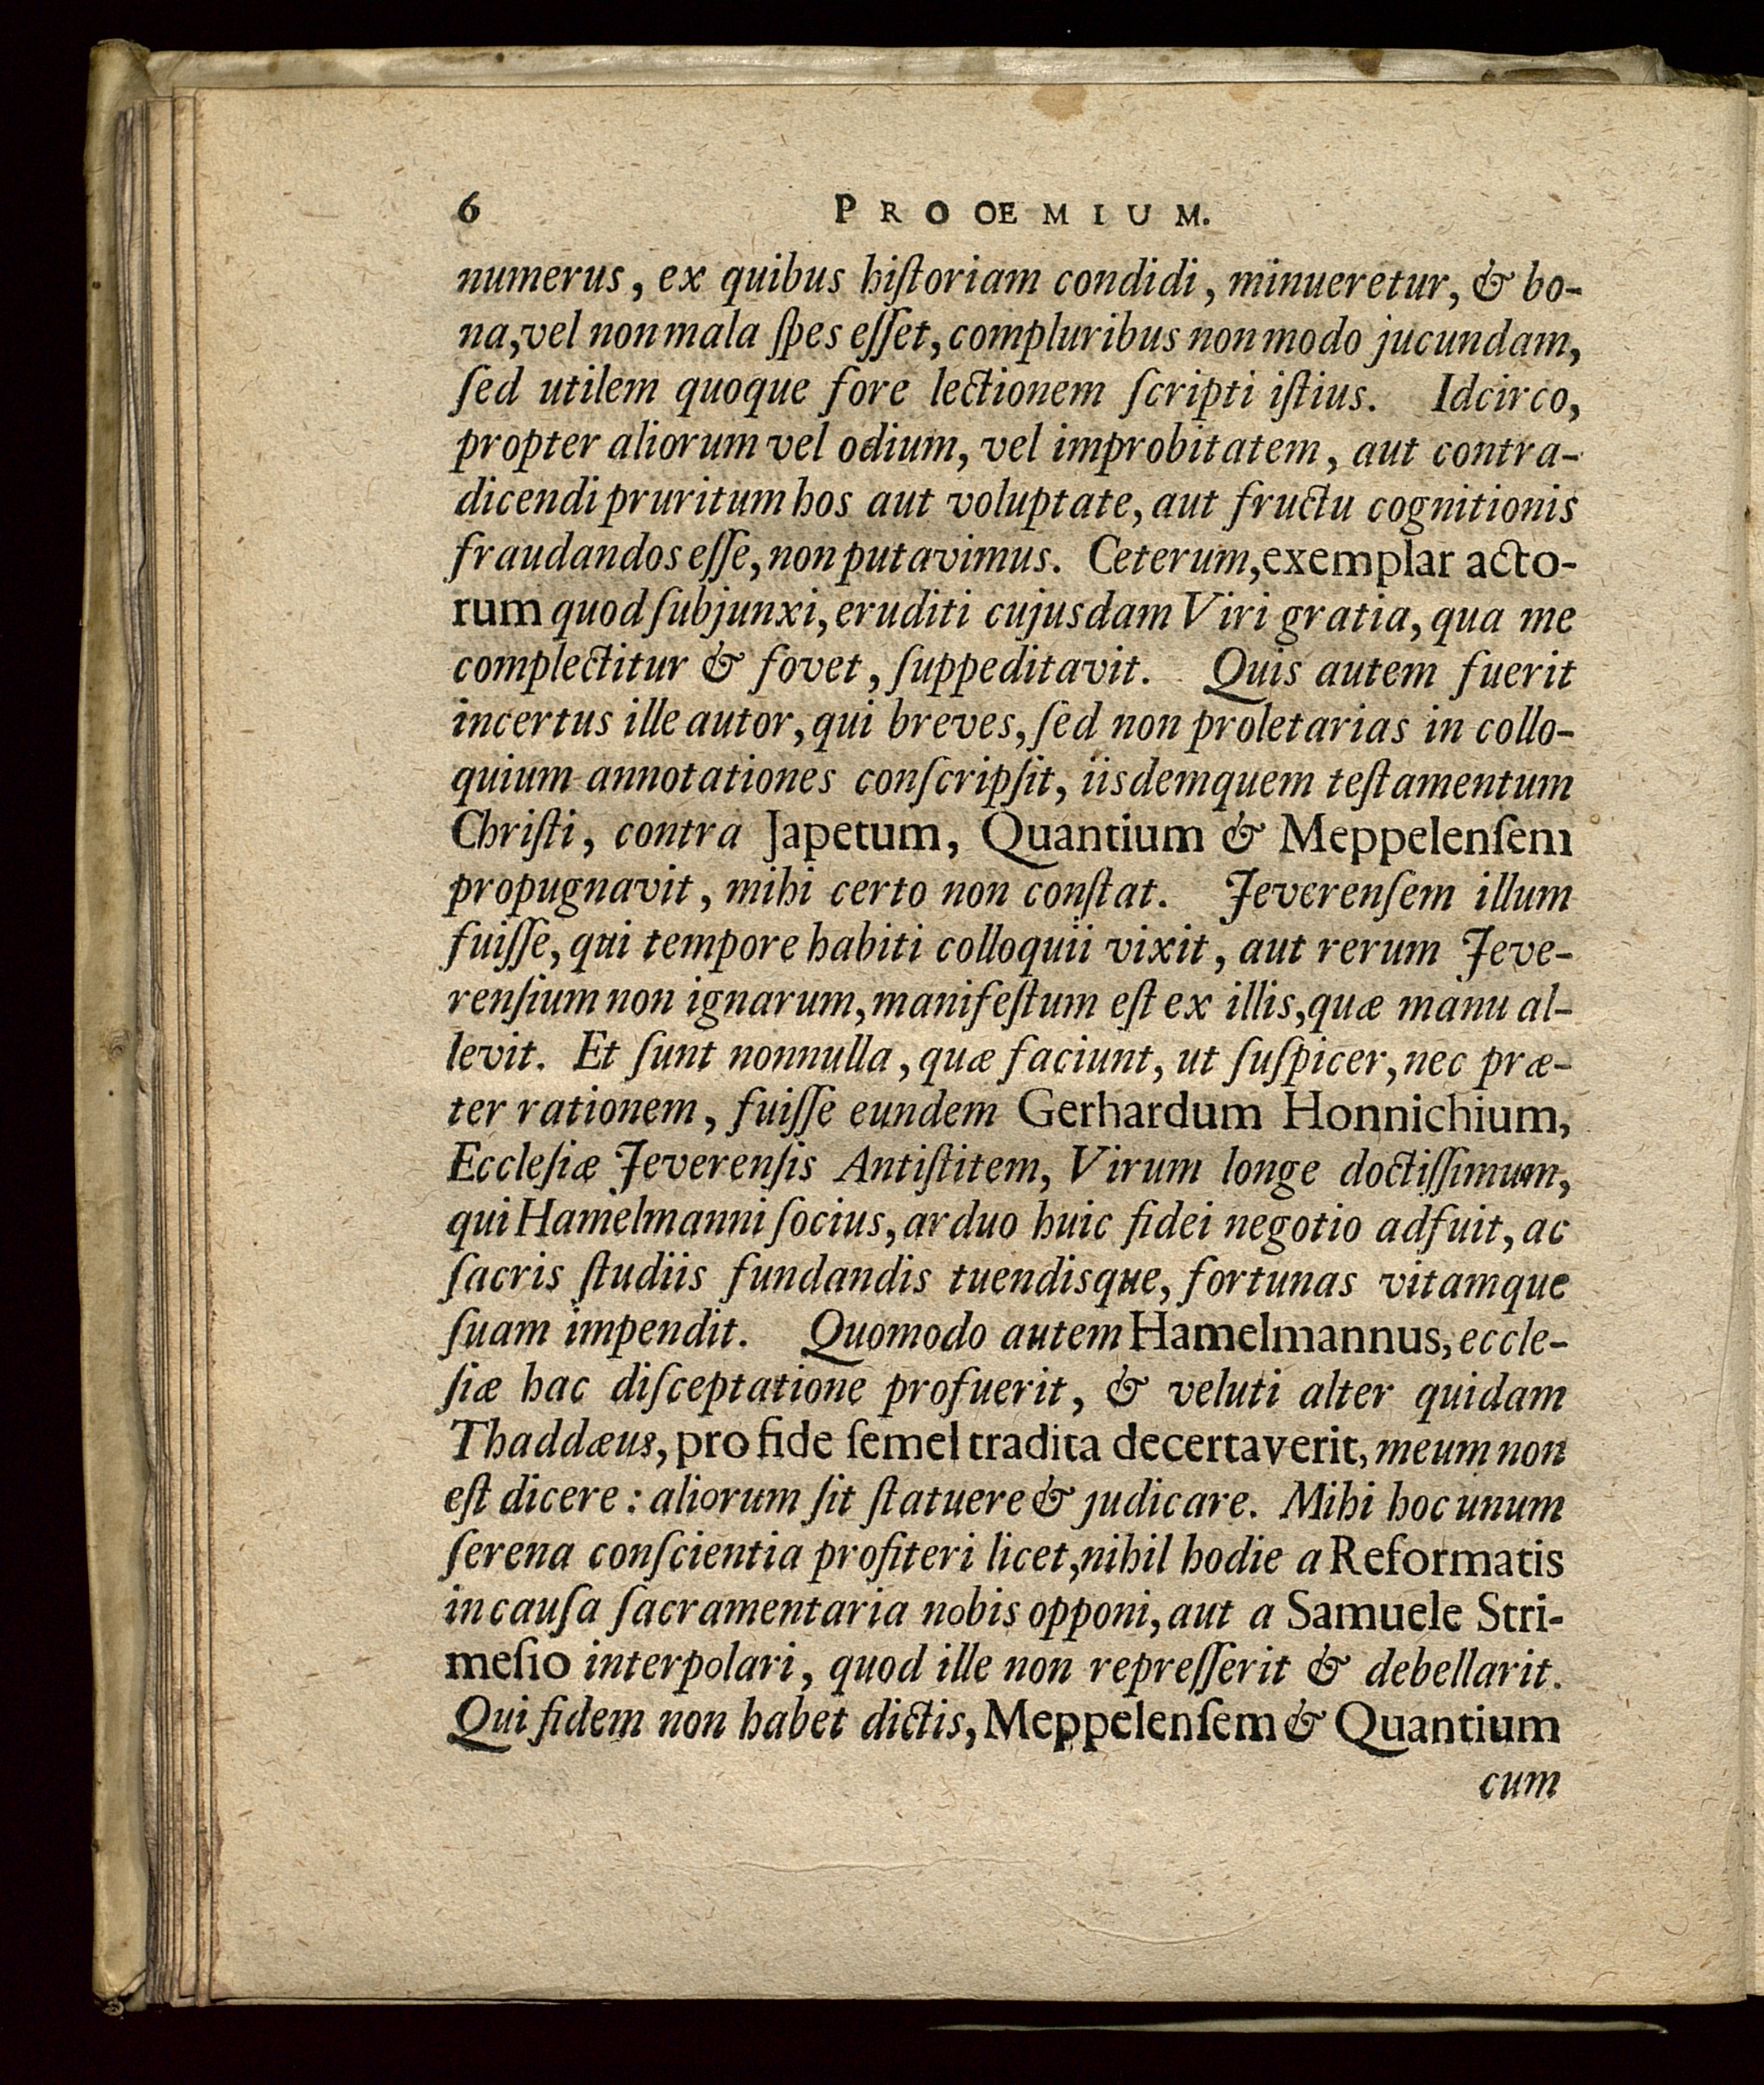 6 PROOEMIUM.
numerus, ex quibus hiſtoriam condidi, minueretur, & bo-
na, vel non mala ſpes eſſet, compluribus non modo jucundam,
ſed utilem quoque fore lectionem ſcripti iſtius. Idcirco,
propter aliorum vel odium, vel improbitatem, aut contra-
dicendi pruritum hos aut voluptate, aut fructu cognitionis
fraudandos eſſe, non putavimus. Ceterum, exemplar acto-
rum quod ſubjunxi, eruditi cujusdam Viri gratia, qua me
complectitur & fovet, ſuppeditavit. Quis autem fuerit
incertus ille autor, qui breves, ſed non proletarias in collo-
quium annotationes conſcripſit, iisdemquem teſtamentum
Chriſti, contra Japetum, Quantium & Meppelenſem
propugnavit, mihi certo non conſtat. Jeverenſem illum
fuiſſe, qui tempore habiti colloquii vixit, aut rerum Jeve-
renſium non ignarum, manifeſtum eſt ex illis, quæ manu al-
levit. Et ſunt nonnulla, quæ faciunt, ut ſuſpicer, nec præ-
ter rationem, fuiſſe eundem Gerhardum Honnichium,
Eccleſiæ Jeverenſis Antiſtitem, Virum longe doctiſſimum,
qui Hamelmanni ſocius, arduo huic fidei negotio adfuit, ac
ſacris ſtudiis fundandis tuendisque, fortunas vitamque
ſuam impendit. Quomodo autem Hamelmannus, eccle-
ſiæ hac diſceptatione profuerit, & veluti alter quidam
Thaddæus, pro fide ſemel tradita decertaverit, meum non
eſt dicere: aliorum ſit ſtatuere & judicare. Mihi hoc unum
ſerena conſcientia profiteri licet, nihil hodie a Reformatis
in cauſa ſacramentaria nobis opponi, aut a Samuele Stri-
meſio interpolari, quod ille non repreſſerit & debellarit.
Qui fidem non habet dictis, Meppelenſem & Quantium
cum